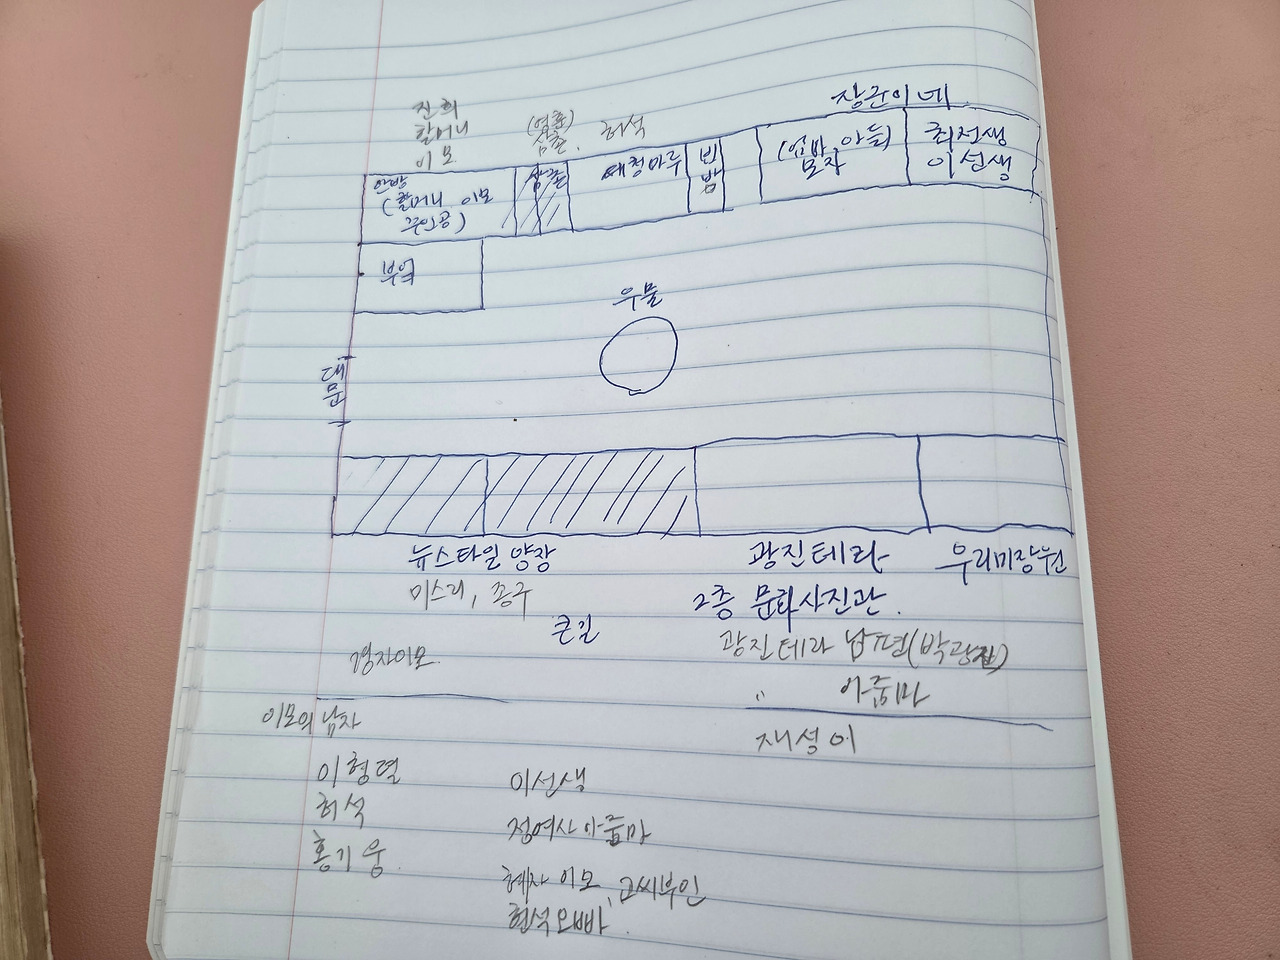 장군이네
진희
할머니
이모
(영훈)
삼촌, 허석
안방
(할머니 이모
주인공)
삼촌
대청마루
빈
방
(엄마, 아들)
모자
최선생
이선생
부엌
우물
대
문
뉴스타일 양장
미스리, 종구
광진테라
2층 문화사진관.
우리미장원
큰길
광진테라 남편(박광진)
〃 아줌마
경자이모
재성이
이모의 남자
이형렬
허석
홍기웅
이선생
정여사 아줌마
혜자 이모, 고씨부인
현석오빠